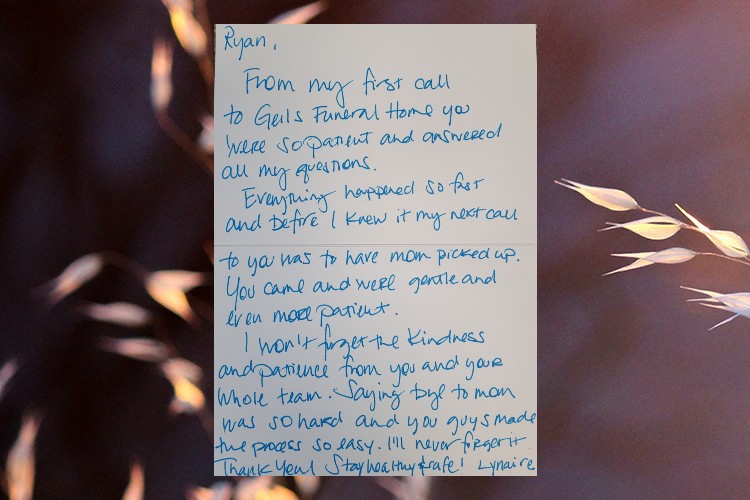 Ryan,
From my first call
to Geils Funeral Home you
were so patient and answered
all my questions.
Everything happened so fast
and before I knew it my next call
to you was to have mom picked up.
You came and were gentle and
even more patient.
I won't forget the kindness
and patience from you and your
whole team. Saying bye to mom
was so hard and you guys made
the process so easy. I'll never forget it.
Thank you! Stay healthy & safe! Lynaire